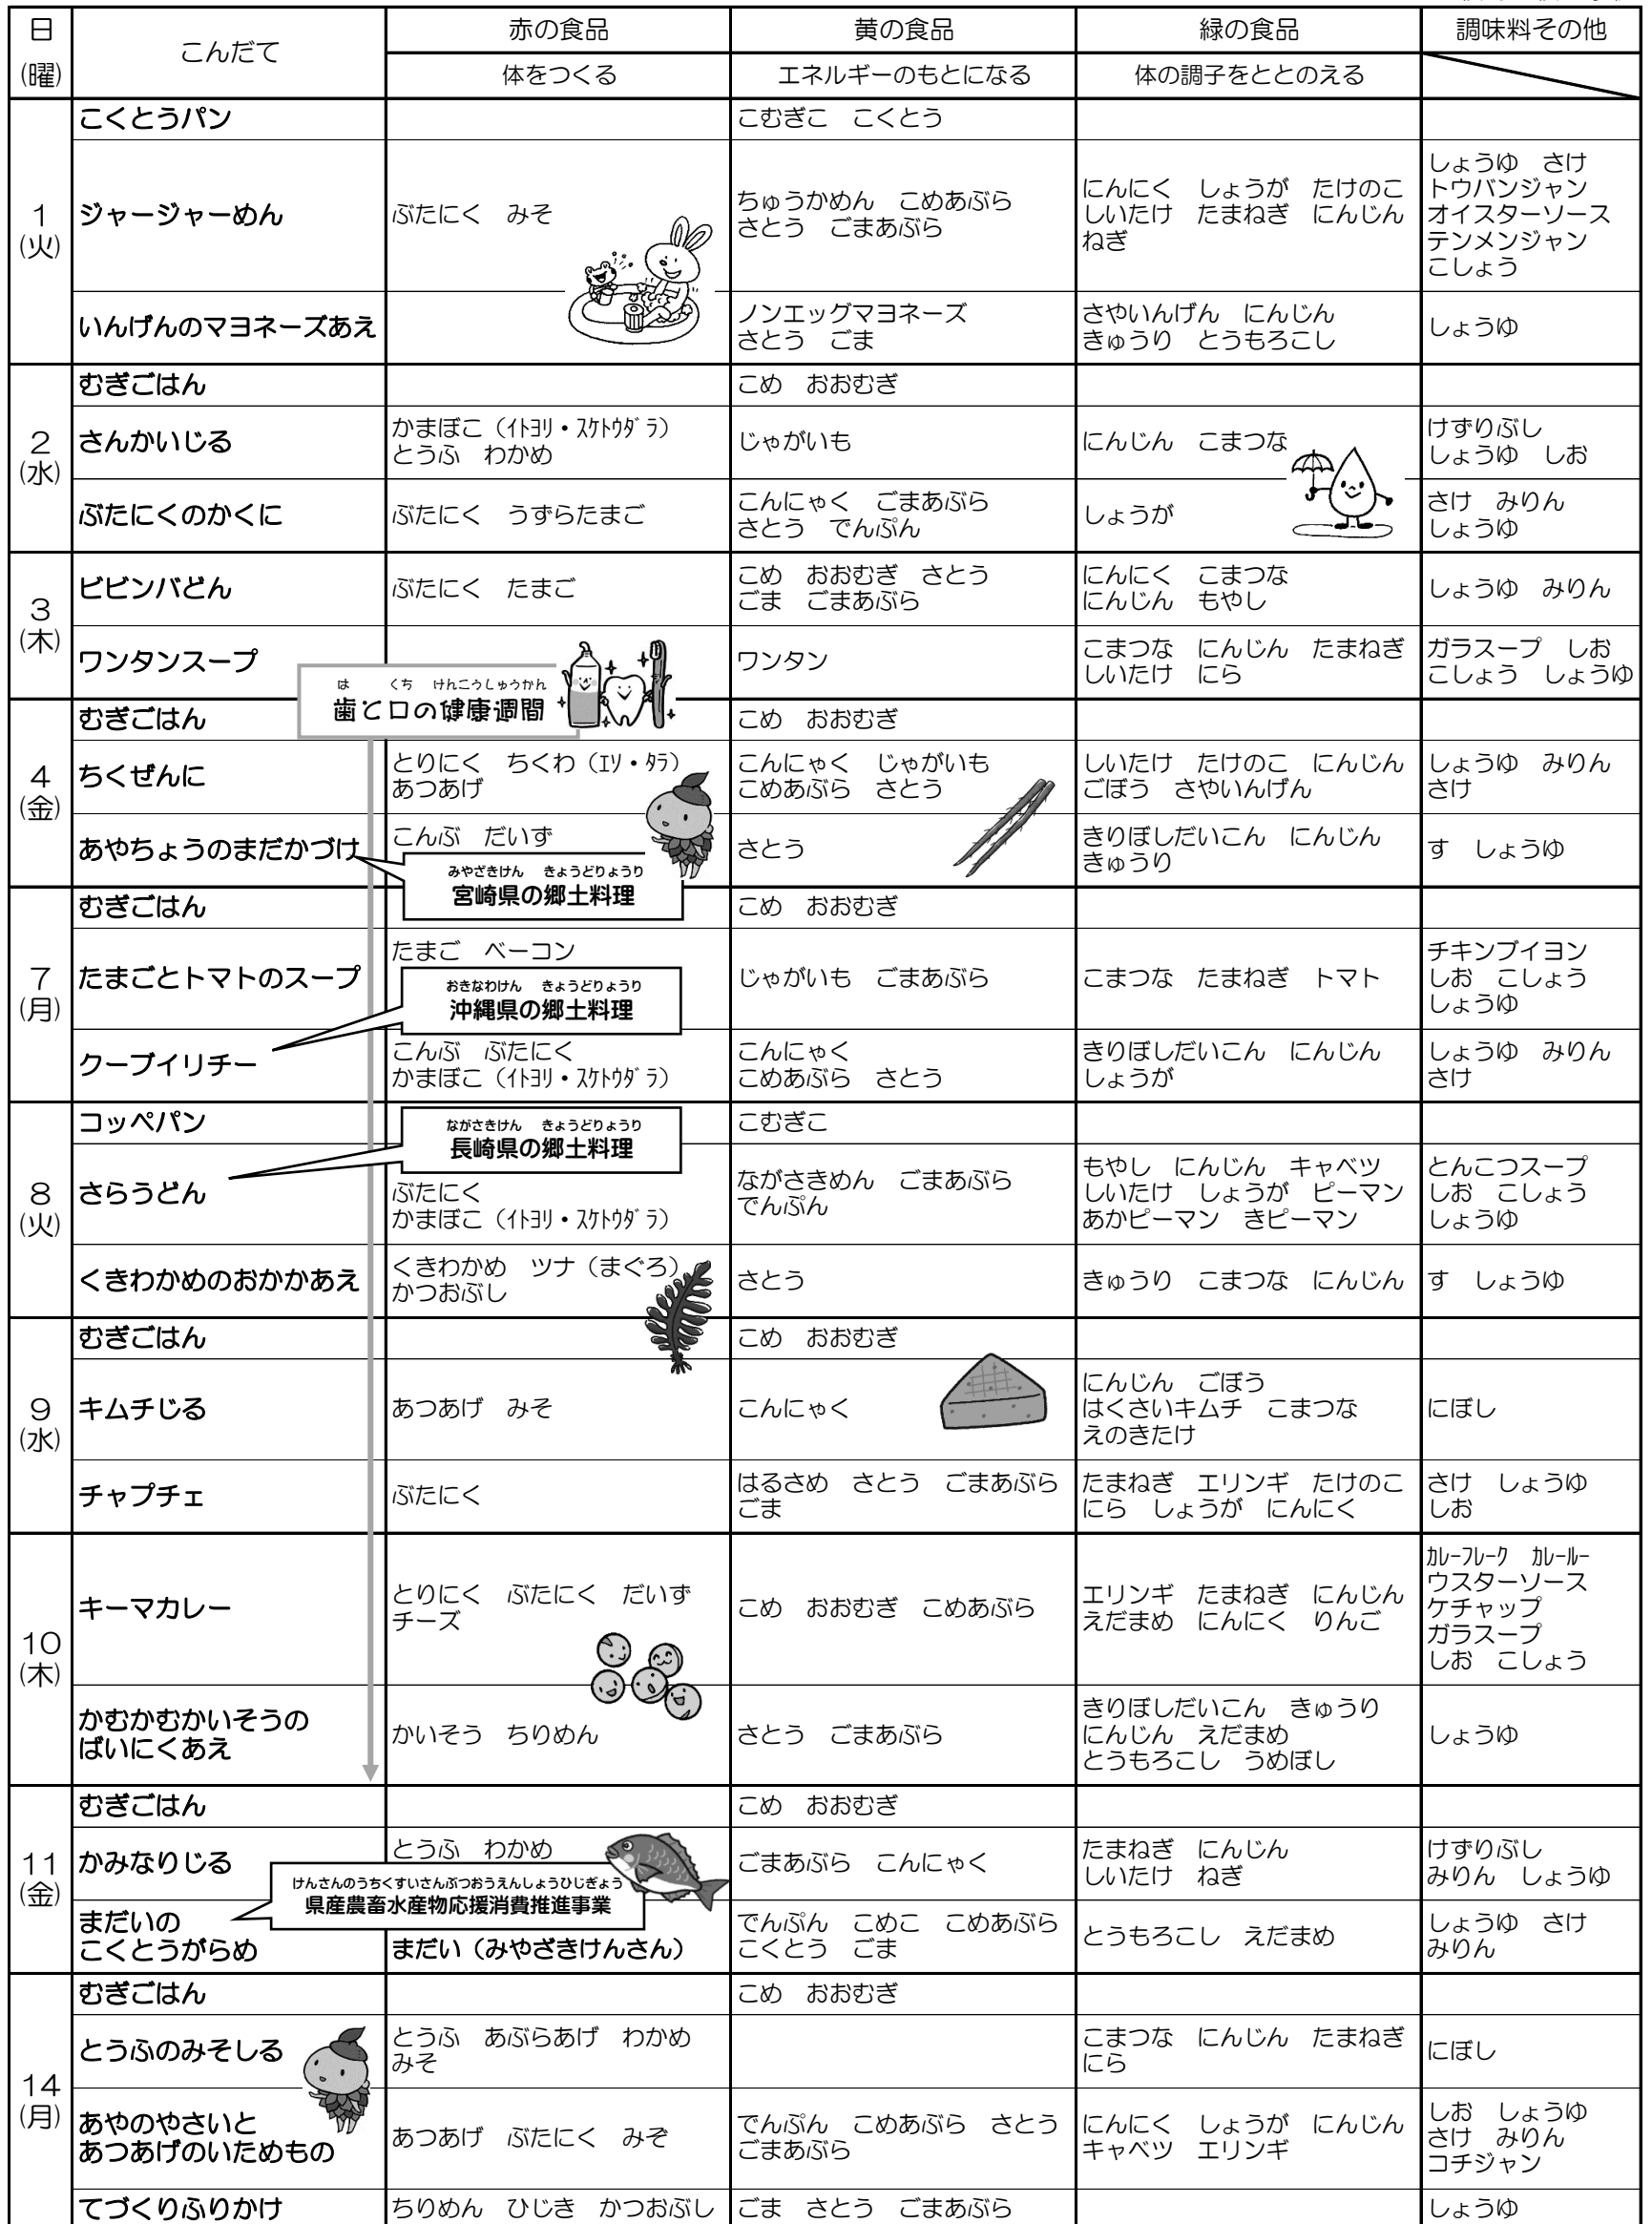 日
(曜)
こんだて
赤の食品
黄の食品
緑の食品
調味料その他
体をつくる
エネルギーのもとになる
体の調子をととのえる
1
(火)
こくとうパン
こむぎこ　こくとう
ジャージャーめん
ぶたにく　みそ
ちゅうかめん　こめあぶら
さとう　ごまあぶら
にんにく　しょうが　たけのこ
しいたけ　たまねぎ　にんじん
ねぎ
しょうゆ　さけ
トウバンジャン
オイスターソース
テンメンジャン
こしょう
いんげんのマヨネーズあえ
ノンエッグマヨネーズ
さとう　ごま
さやいんげん　にんじん
きゅうり　とうもろこし
しょうゆ
2
(水)
むぎごはん
こめ　おおむぎ
さんかいじる
かまぼこ（ｲﾄﾖﾘ・ｽｹﾄｳﾀﾞﾗ）
とうふ　わかめ
じゃがいも
にんじん　こまつな
けずりぶし
しょうゆ　しお
ぶたにくのかくに
ぶたにく　うずらたまご
こんにゃく　ごまあぶら
さとう　でんぷん
しょうが
さけ　みりん
しょうゆ
3
(木)
ビビンバどん
ぶたにく　たまご
こめ　おおむぎ　さとう
ごま　ごまあぶら
にんにく　こまつな
にんじん　もやし
しょうゆ　みりん
ワンタンスープ
ワンタン
こまつな　にんじん　たまねぎ
しいたけ　にら
ガラスープ　しお
こしょう　しょうゆ
は　くち　けんこうしゅうかん
歯と口の健康週間
4
(金)
むぎごはん
こめ　おおむぎ
ちくぜんに
とりにく　ちくわ（ｴｿ・ﾀﾗ）
あつあげ
こんにゃく　じゃがいも
こめあぶら　さとう
しいたけ　たけのこ　にんじん
ごぼう　さやいんげん
しょうゆ　みりん
さけ
あやちょうのまだかづけ
こんぶ　だいず
さとう
きりぼしだいこん　にんじん
きゅうり
す　しょうゆ
みやざきけん　きょうどりょうり
宮崎県の郷土料理
7
(月)
むぎごはん
こめ　おおむぎ
たまごとトマトのスープ
たまご　ベーコン
じゃがいも　ごまあぶら
こまつな　たまねぎ　トマト
チキンブイヨン
しお　こしょう
しょうゆ
おきなわけん　きょうどりょうり
沖縄県の郷土料理
クーブイリチー
こんぶ　ぶたにく
かまぼこ（ｲﾄﾖﾘ・ｽｹﾄｳﾀﾞﾗ）
こんにゃく
こめあぶら　さとう
きりぼしだいこん　にんじん
しょうが
しょうゆ　みりん
さけ
8
(火)
コッペパン
こむぎこ
ながさきけん　きょうどりょうり
長崎県の郷土料理
さらうどん
ぶたにく
かまぼこ（ｲﾄﾖﾘ・ｽｹﾄｳﾀﾞﾗ）
ながさきめん　ごまあぶら
でんぷん
もやし　にんじん　キャベツ
しいたけ　しょうが　ピーマン
あかピーマン　きピーマン
とんこつスープ
しお　こしょう
しょうゆ
くきわかめのおかかあえ
くきわかめ　ツナ（まぐろ）
かつおぶし
さとう
きゅうり　こまつな　にんじん
す　しょうゆ
9
(水)
むぎごはん
こめ　おおむぎ
キムチじる
あつあげ　みそ
こんにゃく
にんじん　ごぼう
はくさいキムチ　こまつな
えのきたけ
にぼし
チャプチェ
ぶたにく
はるさめ　さとう　ごまあぶら
ごま
たまねぎ　エリンギ　たけのこ
にら　しょうが　にんにく
さけ　しょうゆ
しお
10
(木)
キーマカレー
とりにく　ぶたにく　だいず
チーズ
こめ　おおむぎ　こめあぶら
エリンギ　たまねぎ　にんじん
えだまめ　にんにく　りんご
ｶﾚｰﾌﾚｰｸ　ｶﾚｰﾙｰ
ウスターソース
ケチャップ
ガラスープ
しお　こしょう
かむかむかいそうの
ばいにくあえ
かいそう　ちりめん
さとう　ごまあぶら
きりぼしだいこん　きゅうり
にんじん　えだまめ
とうもろこし　うめぼし
しょうゆ
11
(金)
むぎごはん
こめ　おおむぎ
かみなりじる
とうふ　わかめ
ごまあぶら　こんにゃく
たまねぎ　にんじん
しいたけ　ねぎ
けずりぶし
みりん　しょうゆ
けんさんのうちくすいさんぶつおうえんしょうひじぎょう
県産農畜水産物応援消費推進事業
まだいの
こくとうがらめ
まだい（みやざきけんさん）
でんぷん　こめこ　こめあぶら
こくとう　ごま
とうもろこし　えだまめ
しょうゆ　さけ
みりん
14
(月)
むぎごはん
こめ　おおむぎ
とうふのみそしる
とうふ　あぶらあげ　わかめ
みそ
こまつな　にんじん　たまねぎ
にら
にぼし
あやのやさいと
あつあげのいためもの
あつあげ　ぶたにく　みそ
でんぷん　こめあぶら　さとう
ごまあぶら
にんにく　しょうが　にんじん
キャベツ　エリンギ
しお　しょうゆ
さけ　みりん
コチジャン
てづくりふりかけ
ちりめん　ひじき　かつおぶし
ごま　さとう　ごまあぶら
しょうゆ